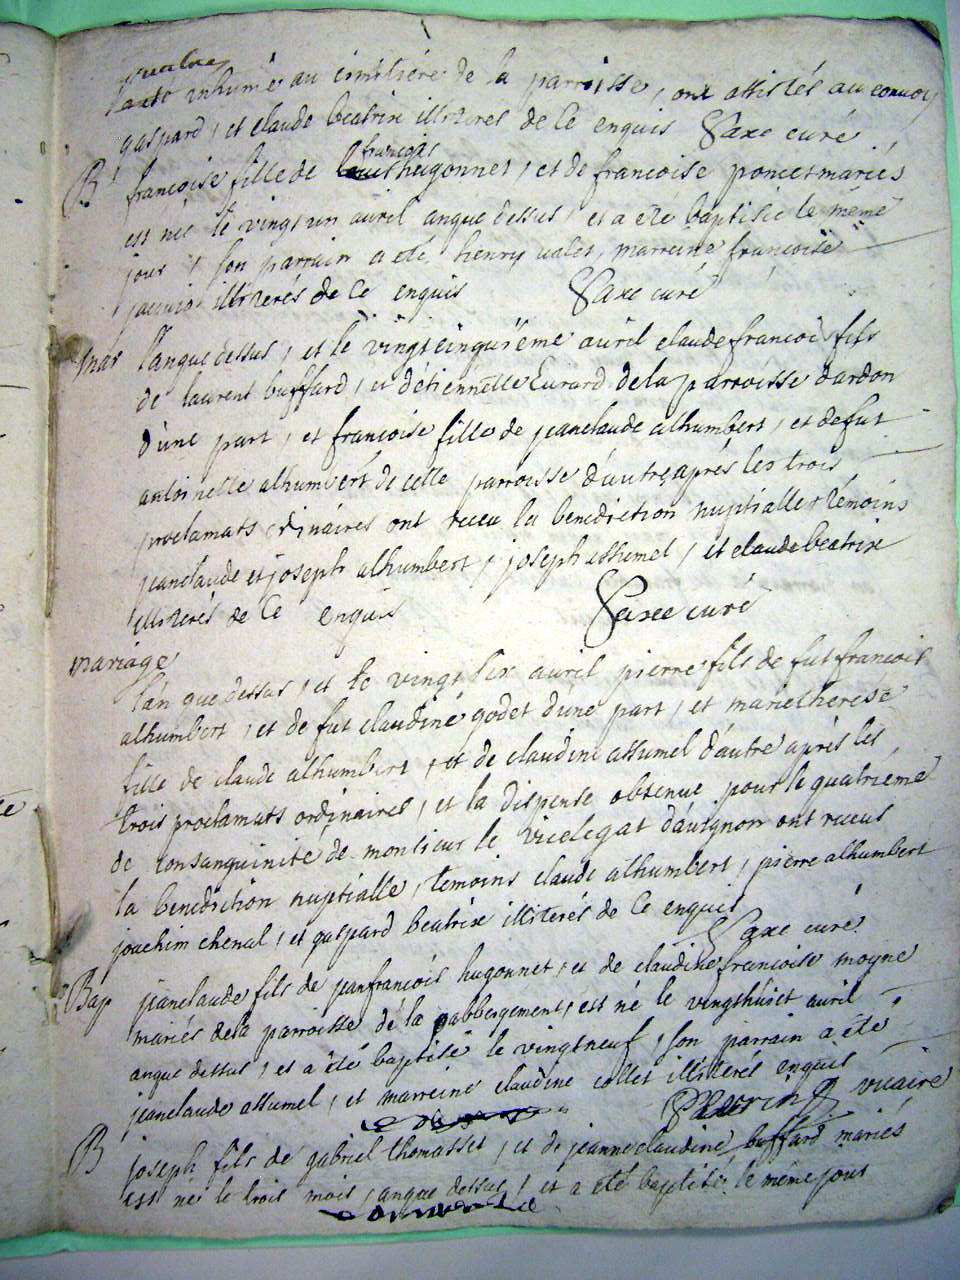 quatre
inhumé au cimetiére de la parroisse, ont assistés au convoy
gaspard, et claude beatrix illiterés de ce enquis Saxe curé
B francoise fille de francois hugonnet, et de francoise poncet mariés
est née le vingt un avril an que dessus, et a été baptisée le même
jour, son parrain a été henry valet, marreine francoise
jacquio illiterés de ce enquis Saxe curé
mar l'an que dessus, et le vingt cinquiéme avril claude francois fils
de laurent buffard, et d'étiennette Evrard de la parroisse dardon
d'une part, et francoise fille de jeanclaude alhumbert, et de fut
antoinette alhumbert de cette parroisse d'autre, aprés les trois
proclamats ordinaires ont receu la benediction nuptialle, témoins
jeanclaude et joseph alhumbert, joseph assumel, et claude beatrix
illiterés de ce enquis Saxe curé
mariage
l'an que dessus, et le vingt six avril pierre fils de fut francois
alhumbert, et de fut claudine godet d'une part, et marie therése
fille de claude alhumbert, et de claudine assumel d'autre aprés les
trois proclamats ordinaires, et la dispense obtenue pour le quatriéme
de consanguinité de monsieur le vicelegat d'avignon ont receus
la benediction nuptialle, témoins claude alhumbert, pierre alhumbert
joachim chenal, et gaspard beatrix illiterés de ce enquis
Saxe curé
Bap jeanclaude fils de jeanfrancois hugonnet, et de claudine francoise moyne
mariés de la parroisse dé la gabbergement, est né le vingthuict avril
an que dessus, et a été baptisé le vingtneuf, son parrain a éte
jeanclaude assumel, et marreine claudine collet illiterés enquis
vicaire
B joseph fils de gabriel thomasset, et de jeanne claudine buffard mariés
est né le trois mois, an que dessus, et a été baptisé le même jour